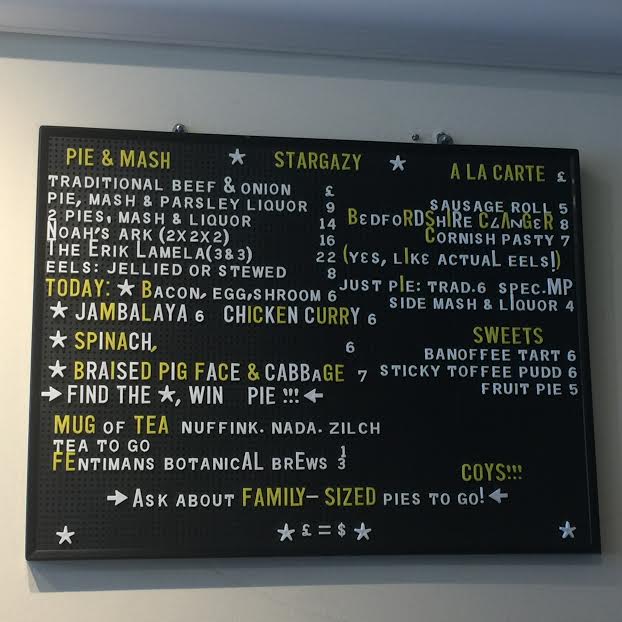 PIE & MASH ★ STARGAZY ★ A LA CARTE £
TRADITIONAL BEEF & ONION £
PIE, MASH & PARSLEY LIQUOR 9
2 PIES, MASH & LIQUOR 14
NOAH'S ARK (2X2X2) 16
THE ERIK LAMELA (3&3) 22
EELS: JELLIED OR STEWED 8
SAUSAGE ROLL 5
BEDFORDSHIRE CLANGER 8
CORNISH PASTY 7
(YES, LIKE ACTUAL EELS!)
JUST PIE: TRAD. 6 SPEC. MP
SIDE MASH & LIQUOR 4
TODAY: ★ BACON, EGG, SHROOM 6
★ JAMBALAYA 6 CHICKEN CURRY 6
★ SPINACH, 6
★ BRAISED PIG FACE & CABBAGE 7
→ FIND THE ★, WIN PIE !!! ←
SWEETS
BANOFFEE TART 6
STICKY TOFFEE PUDD 6
FRUIT PIE 5
MUG OF TEA NUFFINK. NADA. ZILCH
TEA TO GO 1
FENTIMANS BOTANICAL BREWS 3
COYS!!!
→ ASK ABOUT FAMILY-SIZED PIES TO GO! ←
★ ★ £ = $ ★ ★